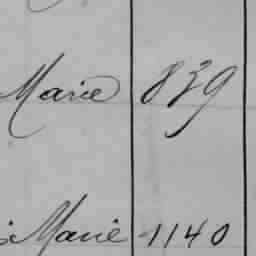 Marie 839
Marie 1140